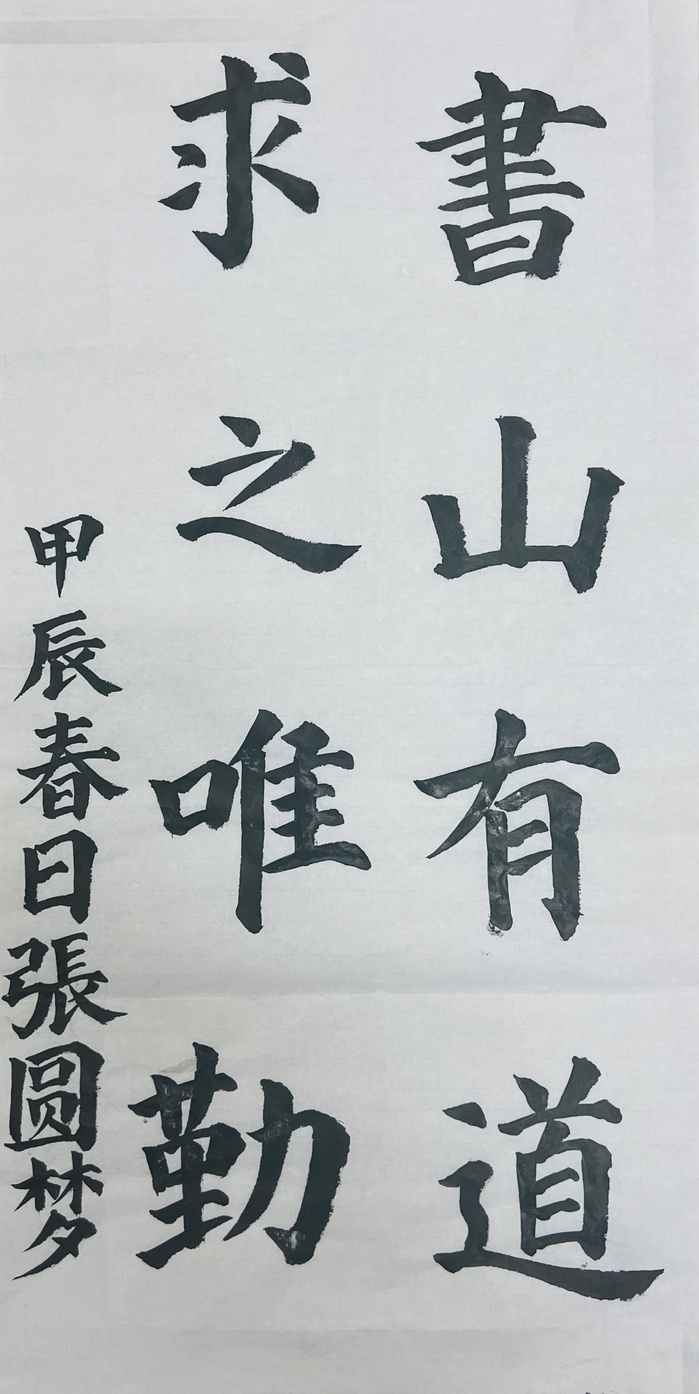 書山有道
求之唯勤
甲辰春日張圆梦